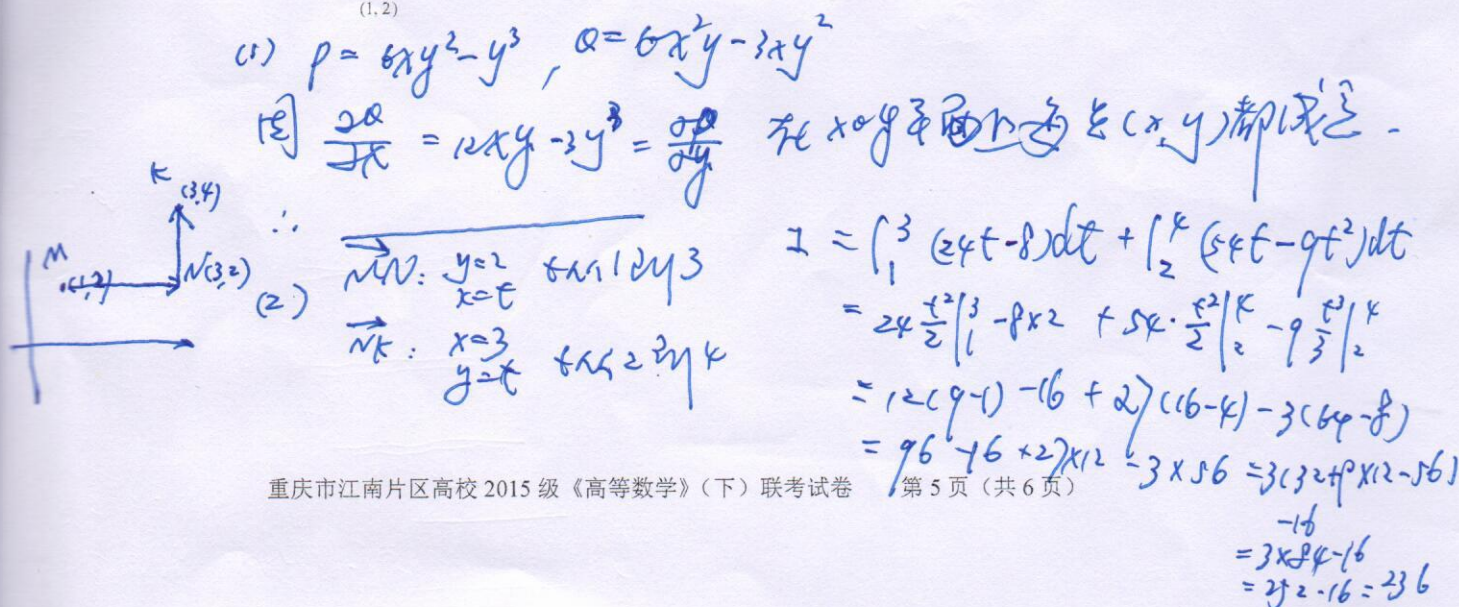 (1,2)
(1) P = 6xy² - y³, Q = 6x²y - 3xy²
因 ∂Q/∂x = 12xy - 3y² = ∂P/∂y 在 xoy平面上各点(x,y)都成立.
∴
K (3,4)
M (1,2) N(3,2)
(2) MN: y=2 x=t t从1到3
NK: x=3 y=t t从2到4
I = ∫₁³ (24t-8)dt + ∫₂⁴ (54t-9t²)dt
= 24 t²/2 |₁³ - 8×2 + 54· t²/2 |₂⁴ - 9 t³/3 |₂⁴
= 12(9-1) - 16 + 27(16-4) - 3(64-8)
= 96 - 16 + 27×12 - 3×56 = 3(32+9×12-56)
-16
= 3×84-16
= 252-16 = 236
重庆市江南片区高校 2015 级《高等数学》（下）联考试卷 第 5 页（共 6 页）